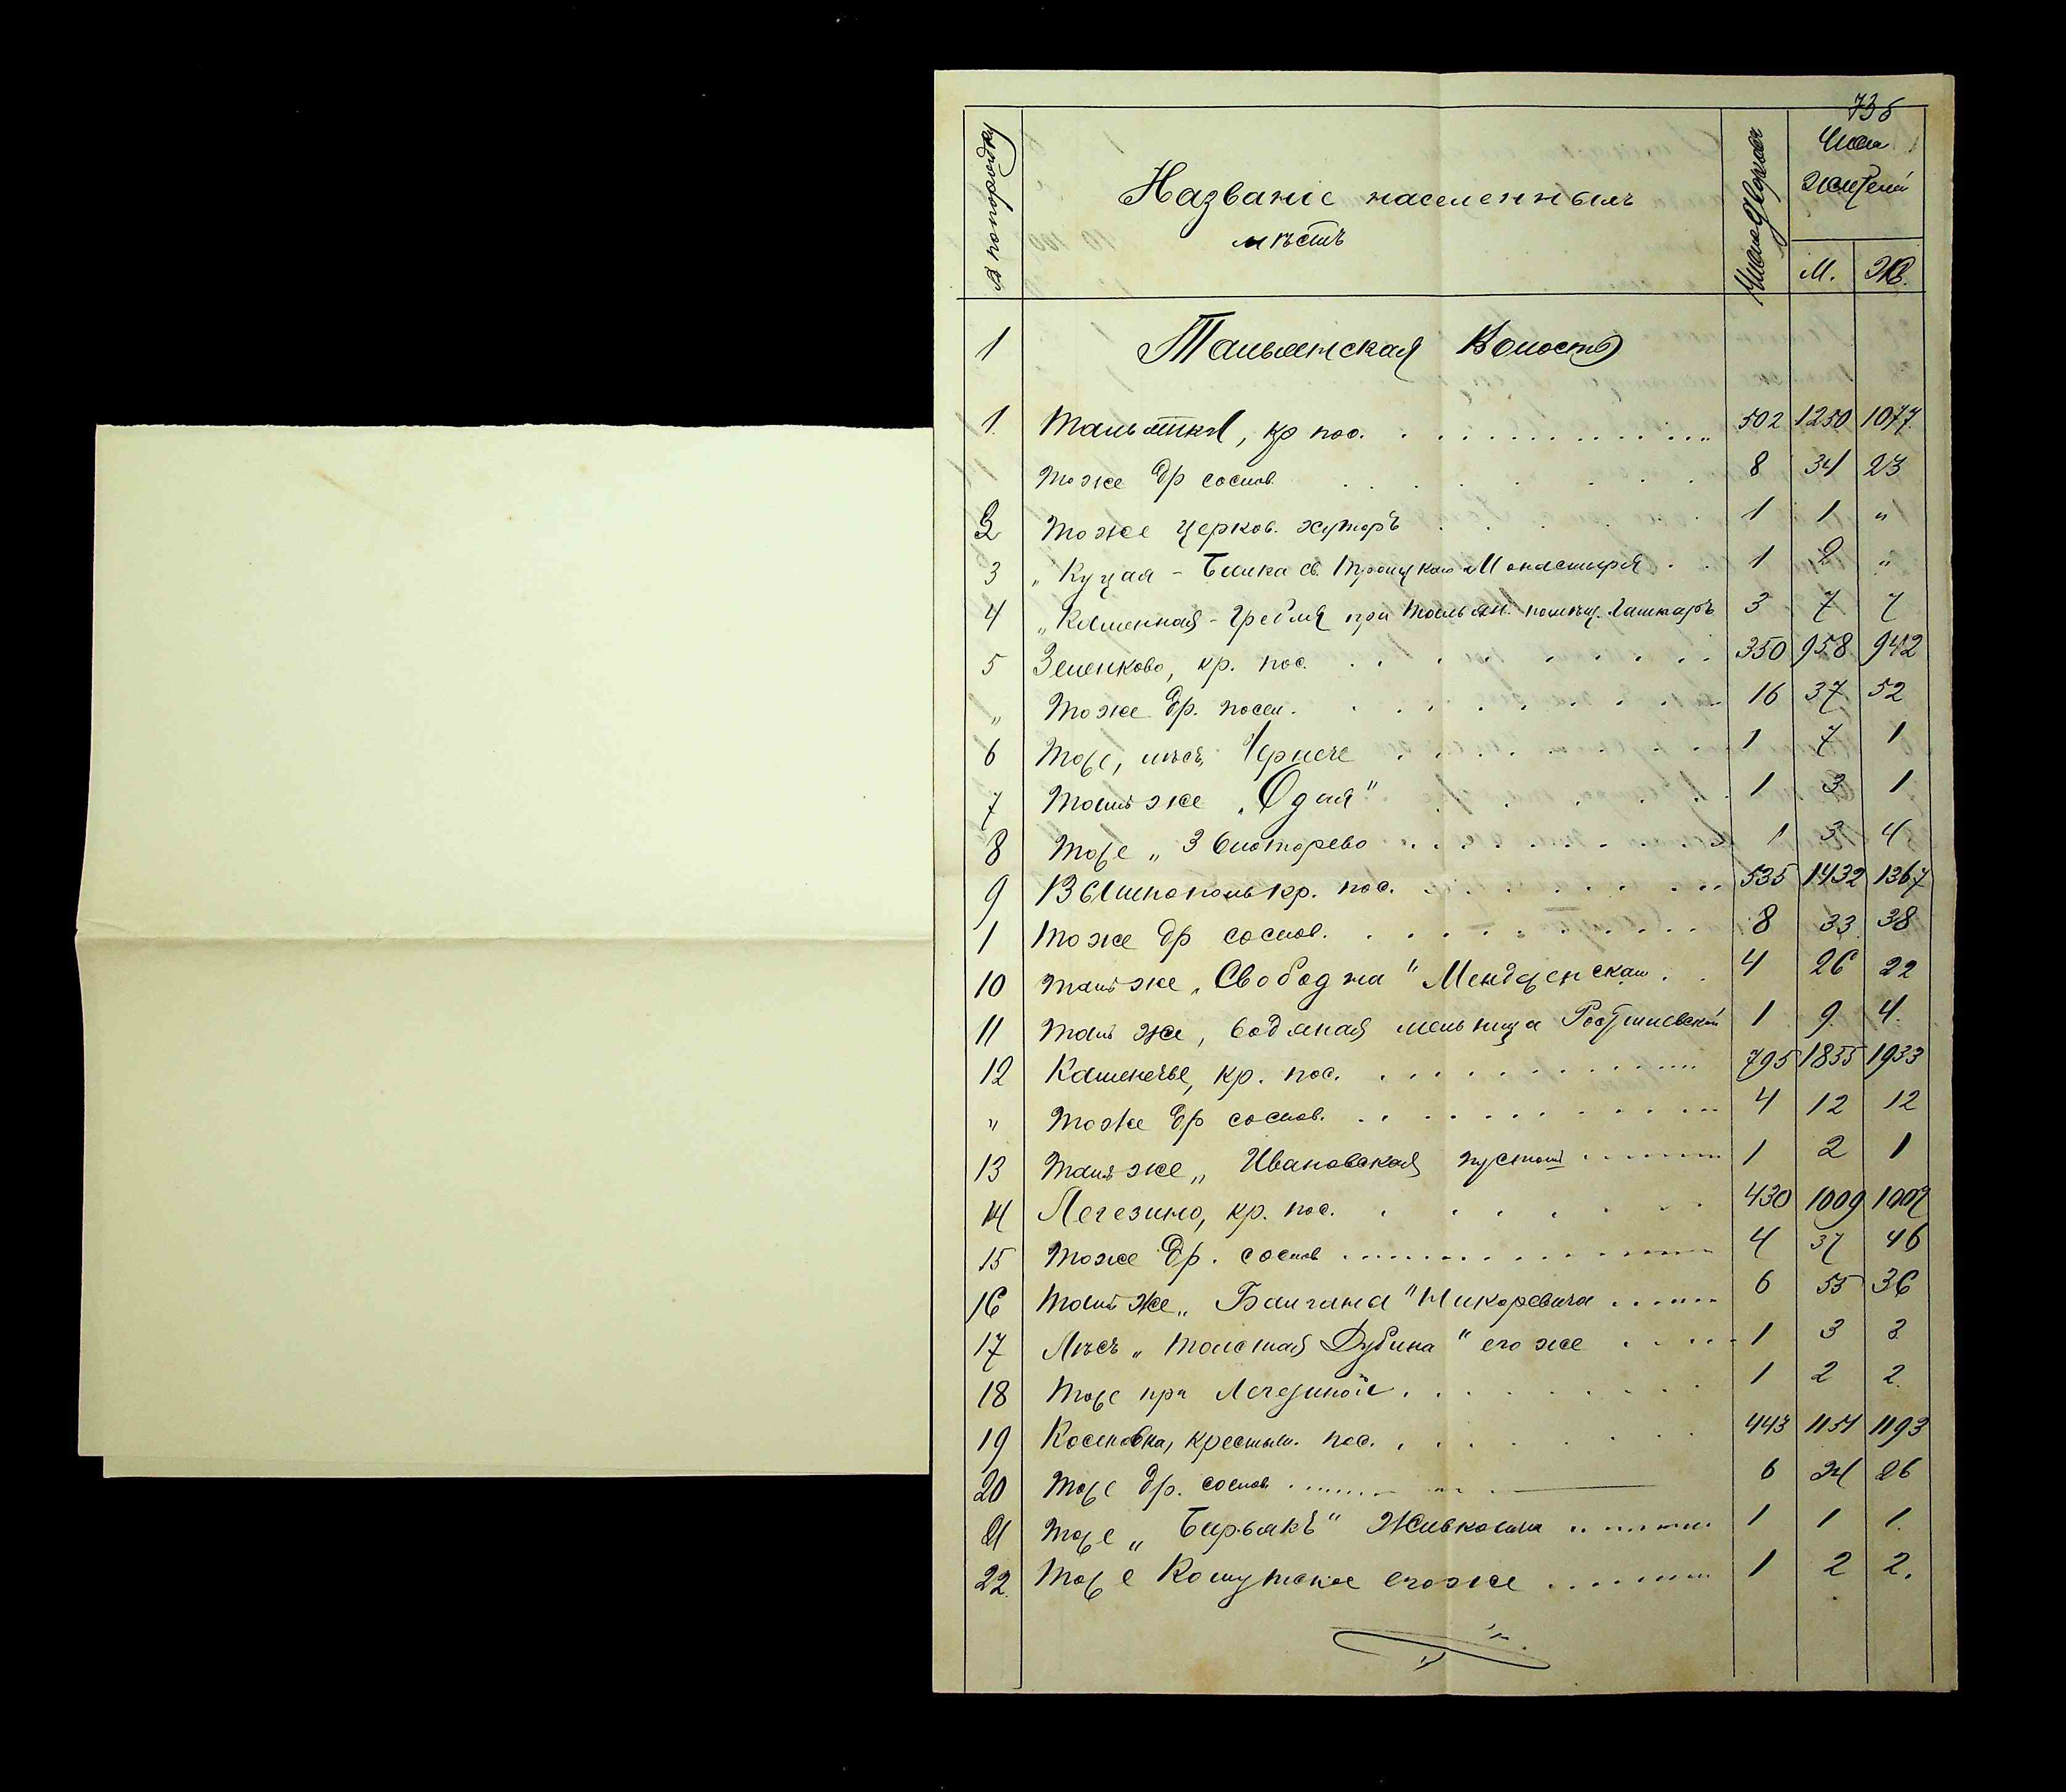 73б
№ по порядку
Названіе населенныхъ
мѣстъ
Число дворовъ
Число
жителей
М. Ж.
1 Тальянская Волость
1. Тальянки, кр пос. 502 1250 1077
Тоже др сослов. 8 34 23
2 Тоже церков. хуторъ 1 1 "
3 "Куцая-Балка св. Троицкаго Монастыря 1 2 "
4 "Каменная-Гребля при Тальян. помѣщ. 3 7 7
5 Зеленково, кр. пос. 350 958 942
" Тоже др. посел. 16 37 52
6 Тоже, лѣсъ 1 7 1
7 Тамъ же "Одая" 1 3 1
8 Тоже " 1 3 4
9 Вишнополь кр. пос. 535 1432 1367
1 Тоже др сослов. 8 33 38
10 тамъ же "Свободна" 4 26 22
11 тамъ же, водяная мельница 1 9 4.
12 Каменечье, кр. пос. 795 1855 1933
" Тоже др сослов. 4 12 12
13 тамъ же " Ивановская 1 2 1
14 Легезино, кр. пос. 430 1009 1007
15 Тоже др. сослов 4 37 46
16 тамъ же " 6 55 36
17 Лѣсъ "Толстая Дубина" его же 1 3 3
18 Тоже при Легезиной 1 2 2.
19 Косеновка, крестьян. пос. 443 1151 1193
20 Тоже др. сослов 6 24 26
21 Тоже " 1 1 1.
22. Тоже его же 1 2 2.